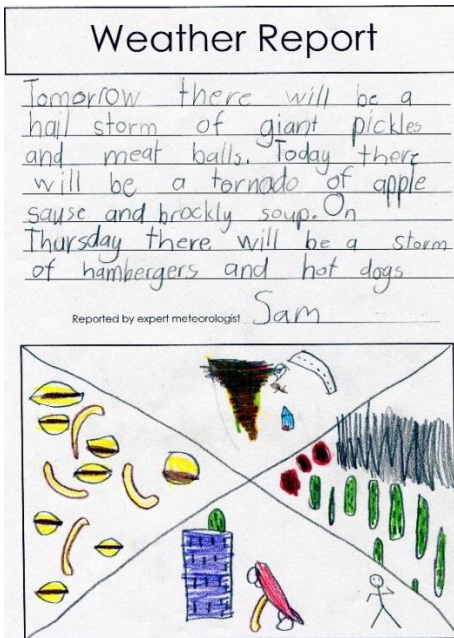 Weather Report
Tomorrow there will be a
hail storm of giant pickles
and meat balls. Today there
will be a tornado of apple
sause and brockly soup. On
Thursday there will be a storm
of hambergers and hot dogs
Reported by expert meteorologist Sam